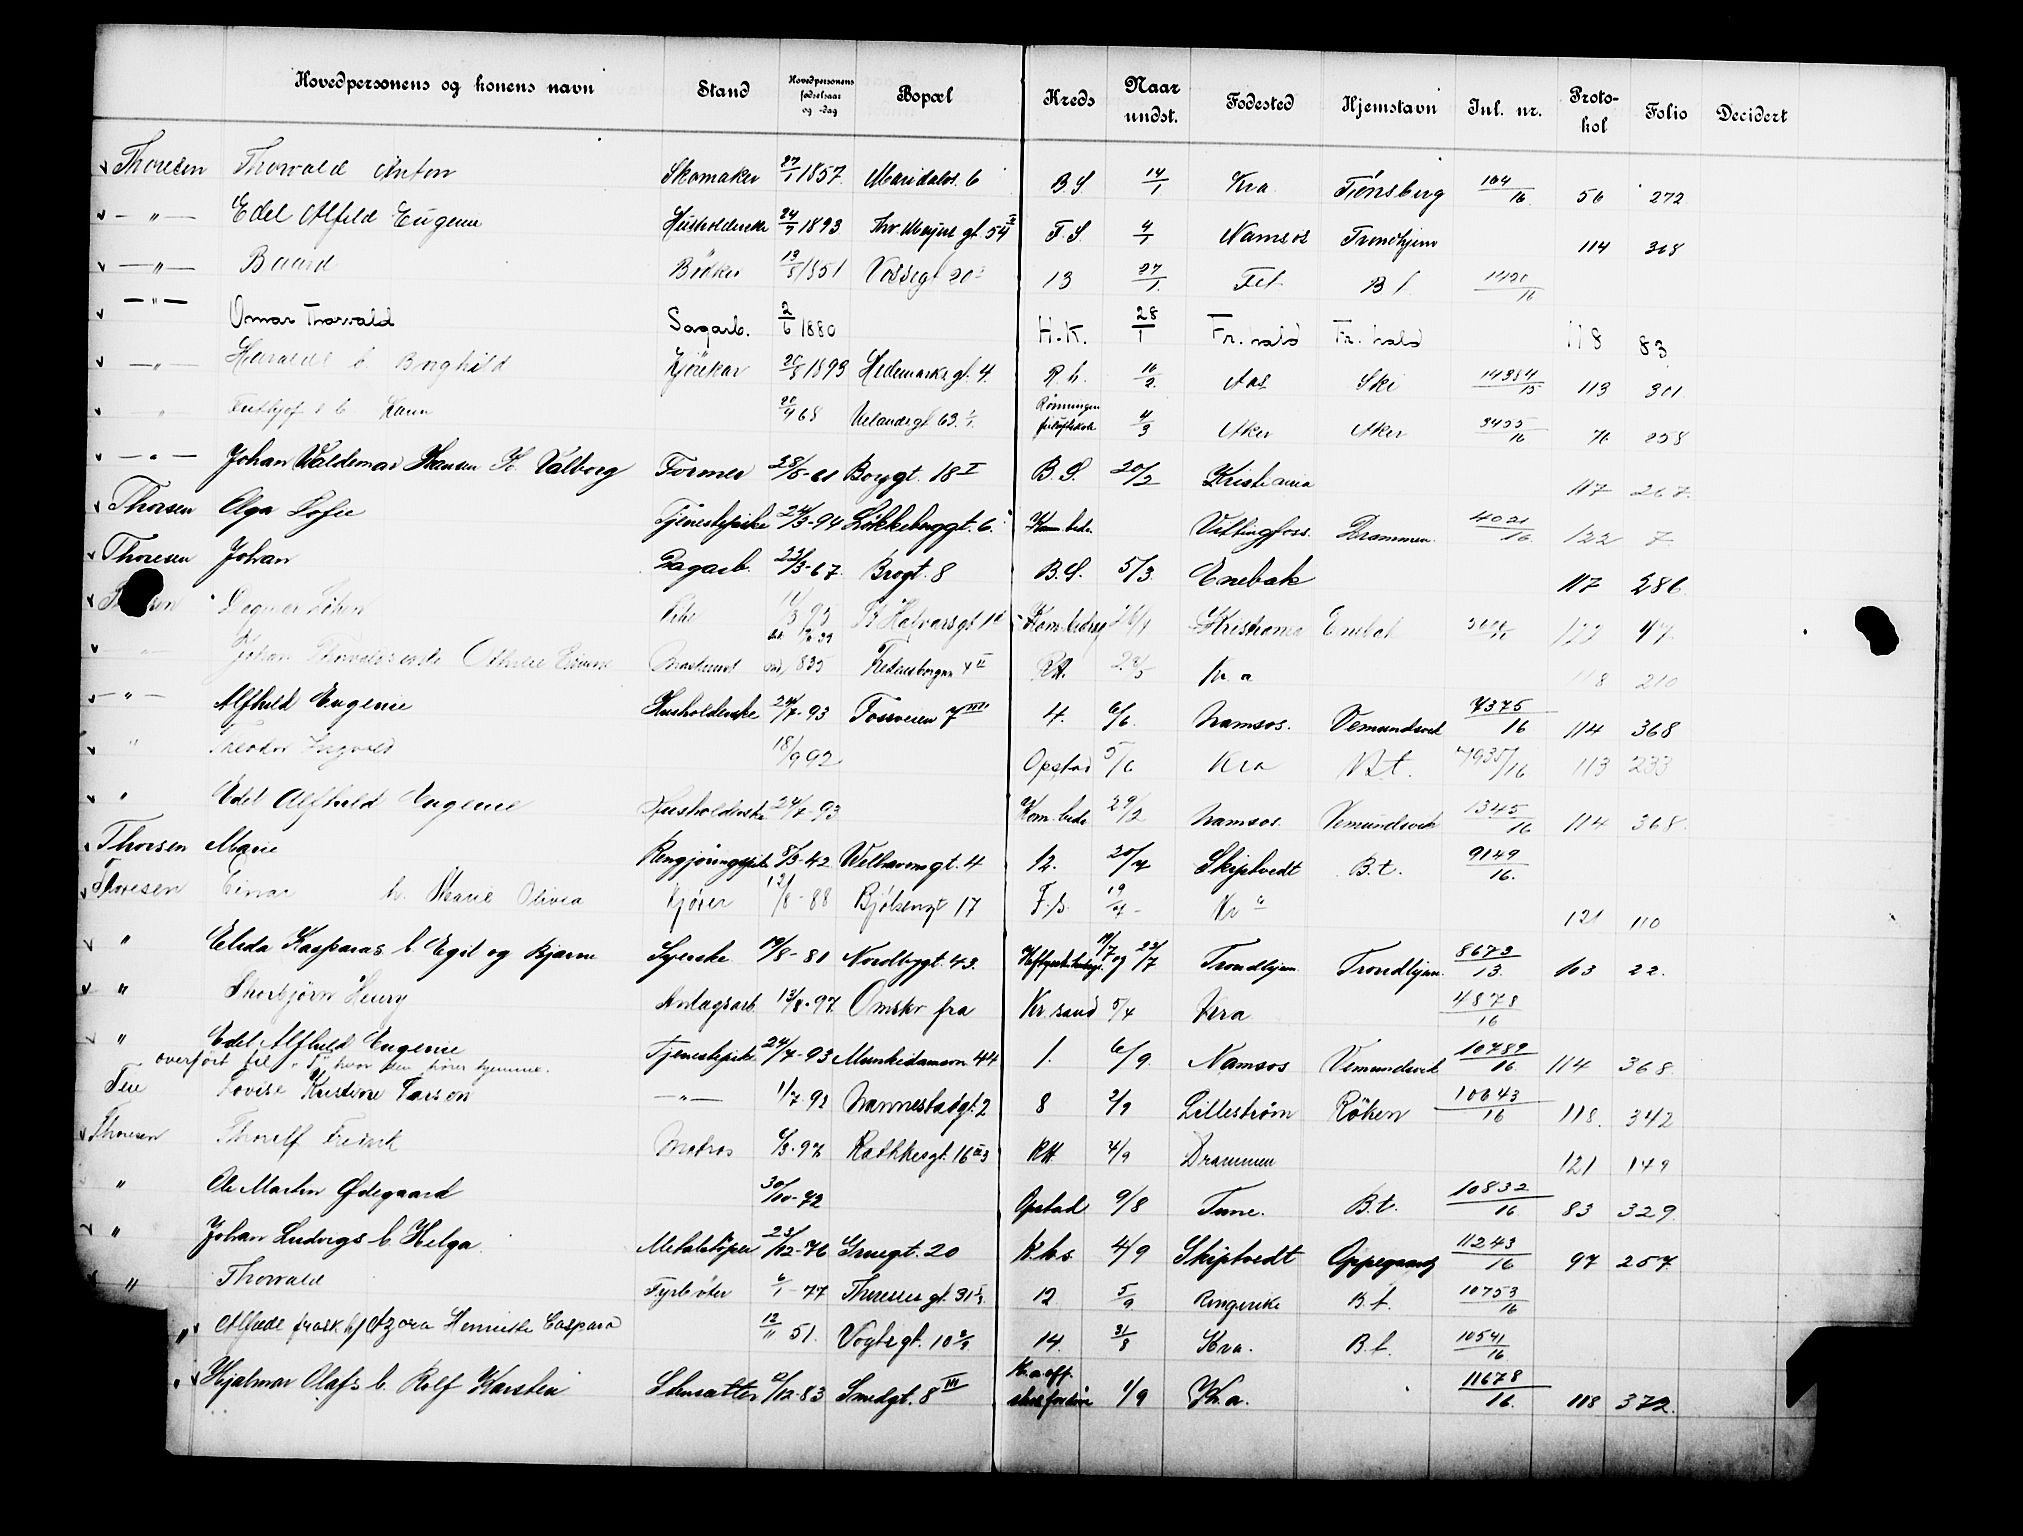 Hovedpersonens og konens navn Stand Hovedpersonens fødselsaar og -dag Bopæl Kreds Naar undst. Fødested Hjemstavn Jnl. nr. Protokol Folio Decidert
Thoresen Thorvald Anton Skomaker 27/1 1857 Maridalsv. 6 B.S 14/1 Kra Tønsberg 104/16 56 272
— " — Edel Alfild Eugenie Husholderske 24/7 1893 Thv. Meyers gt. 54 II F.S. 4/1 Namsos Trondhjem 114 368
— " — Baard Bødker 13/8 1851 Vossegt 20 13 27/1 Fet B t 1420/16
— " — Omar Thorvald Sagarb. 2/6 1880 H.K. 28/1 Fr. hald Fr. hald 118 83
— " — b. Borghild Kjørekar 26/8 1893 Hedemarks gt. 4. R.h. 10/2 Aas Ski 14384/15 113 301
" 20/4 68 Uelandsgt 63 Rønningen friluftskole 4/3 Aker Aker 3455/16 76 258
— " — Johan Waldemar Hansen K. Valborg Former 28/8-61 Borggt. 18 I B.S. 20/2 Kristiania 117 267.
Thorsen Olga Sofie Tjenestepike 24/3-94 Løkkeberggt. 6. Kom. beds. Vittingfoss. Drammen. 4021/16 122 7.
Thoresen Johan Sagarb. 22/3-67. Brogt. 8 B.S. 5/3 Enebak 117 286
Dagmar 93 St Halvarsgt 1 Kom. beds 26/1 Kristiania Enebak 122 47
" Johan 1835 Fredensborgvn II R.H. Kr. a 118 210
— " — Alfhild Eugenie Husholderske 24/7-93 Fossveien 7 III 4. 6/6. Namsos. Vemundsvik 7375/16 114 368
" Theodor Ingvald 18/9 92 Opstad 5/6 Kra B.t. 7935/16 113 233
" Edel Alfhild Eugenie Husholderske 24/7-93 Kom. beds 29/2 Namsos. Vemundsvik 1345/16 114 368.
Thorsen Marie Rengjøringspike 8/3-42 Welhavensgt. 4 12. 20/7 Skiptvedt B.t. 9149/16.
Thoresen Einar h. Marie Olivia Kjører 12/8-88 Bjølsengt 17 F.s. 19/7- Kr a 121 110
" Elida Kasparas b. Egil og Bjarne Syerske 19/8-81 Nordbygt. 43. 19/7 og 22/7 Trondhjem Trondhjem. 8673/13. 103 22.
" Thorbjørn Henry Anlagsarb. 13/8-97. Omskr fra Kr. sand 5/4 Kra 4878/16
" Edel Alfhild Eugenie Tjenestepike 24/7-93 Munkedamsvn 44 1. 6/9. Namsos Vemundsvik 10789/16 114 368.
overført til "T" hvor den hører hjemme.
Lovise Kristine Larsen — " — 1/7-93 Nannestadgt. 2 8 2/9 Lillestrøm Røken 10643/16 118. 342
Thoresen Thorolf Fredrik Matros 6/3-97 Rathkesgt. 16 II 3 RH 4/9 Drammen 121 149
" Ole Martin Ødegaard 30/10-72 Opstad 9/8 Tune. B.t. 10832/16 83 329.
" Johan Ludvigs b. Helga. Metalstøper 23/12-76 Gruegt. 20 K.h.s. 4/9 Skiptvedt Oppegaard 11243/16 97 257.
" Thorvald Fyrbøter 6/1-77 Theresesgt. 31 12 5/9 Ringerike B.t. 10753/16
" Alfilde frask. hj Azora Henriette Caspara 12/11 51. Vogtsgt. 10 14 31/8 Kra. B.t. 10541/16
" Hjalmar Olafs b. Rolf Karsten Stensætter 12/12-83 Smedgt. 8 III 1/9 Kr.a. 11678/16. 118 372.